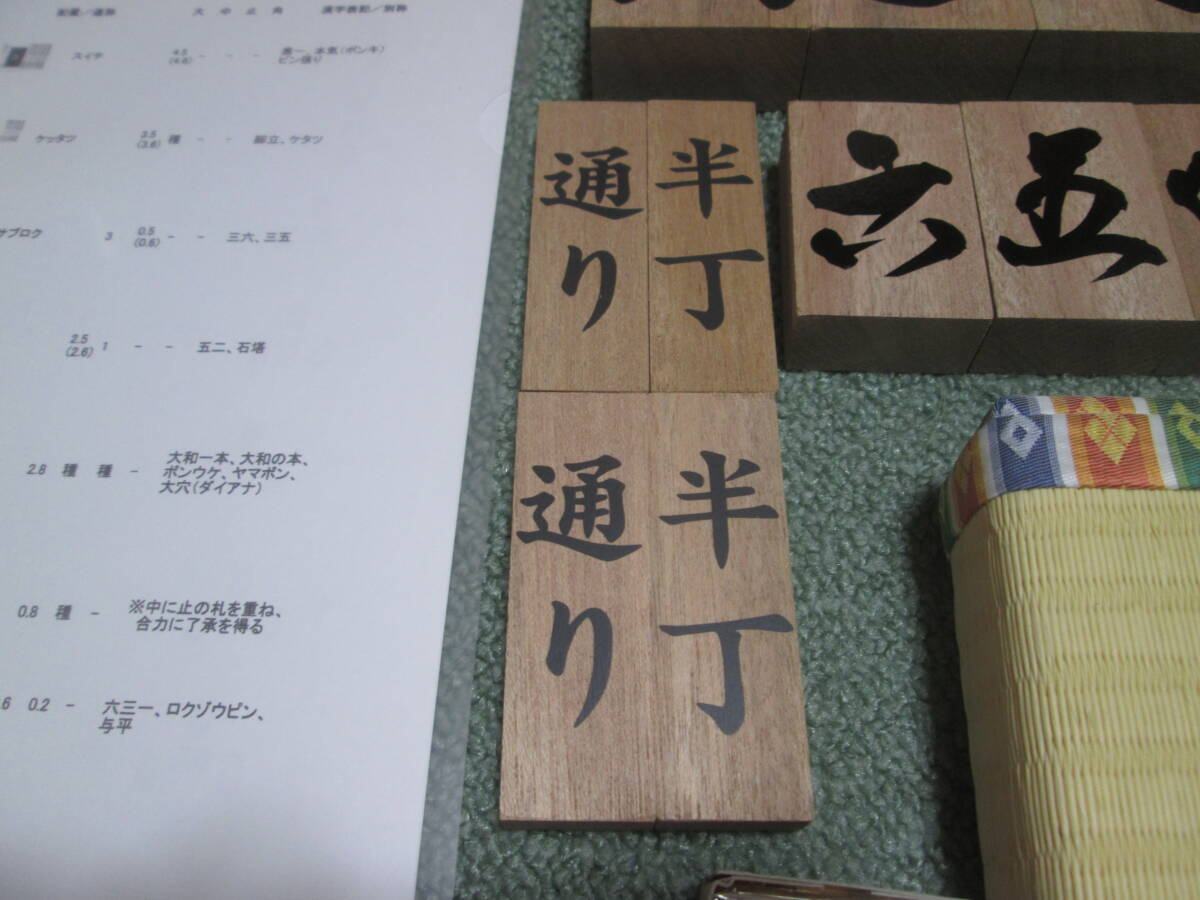 配置/通称 大 中 止 角 漢字表記/別称
スイチ 4.5 (4.6) - - - 本気(ポンキ)
ケッタツ 3.5 (3.6) 種 - - 脚立、ケタツ
サブロク 3 0.5 (0.6) - - 三六、三五
2.5 (2.6) 1 - - 五二、石塔
2.8 種 種 - 大和一本、大和の本、
ポンウケ、ヤマポン、
大穴(ダイアナ)
0.8 種 - ※中に止の札を重ね、
合力に了承を得る
6 0.2 - 六三一、ロクゾウピン、
与平
通り
半丁
通り
半丁
六
五